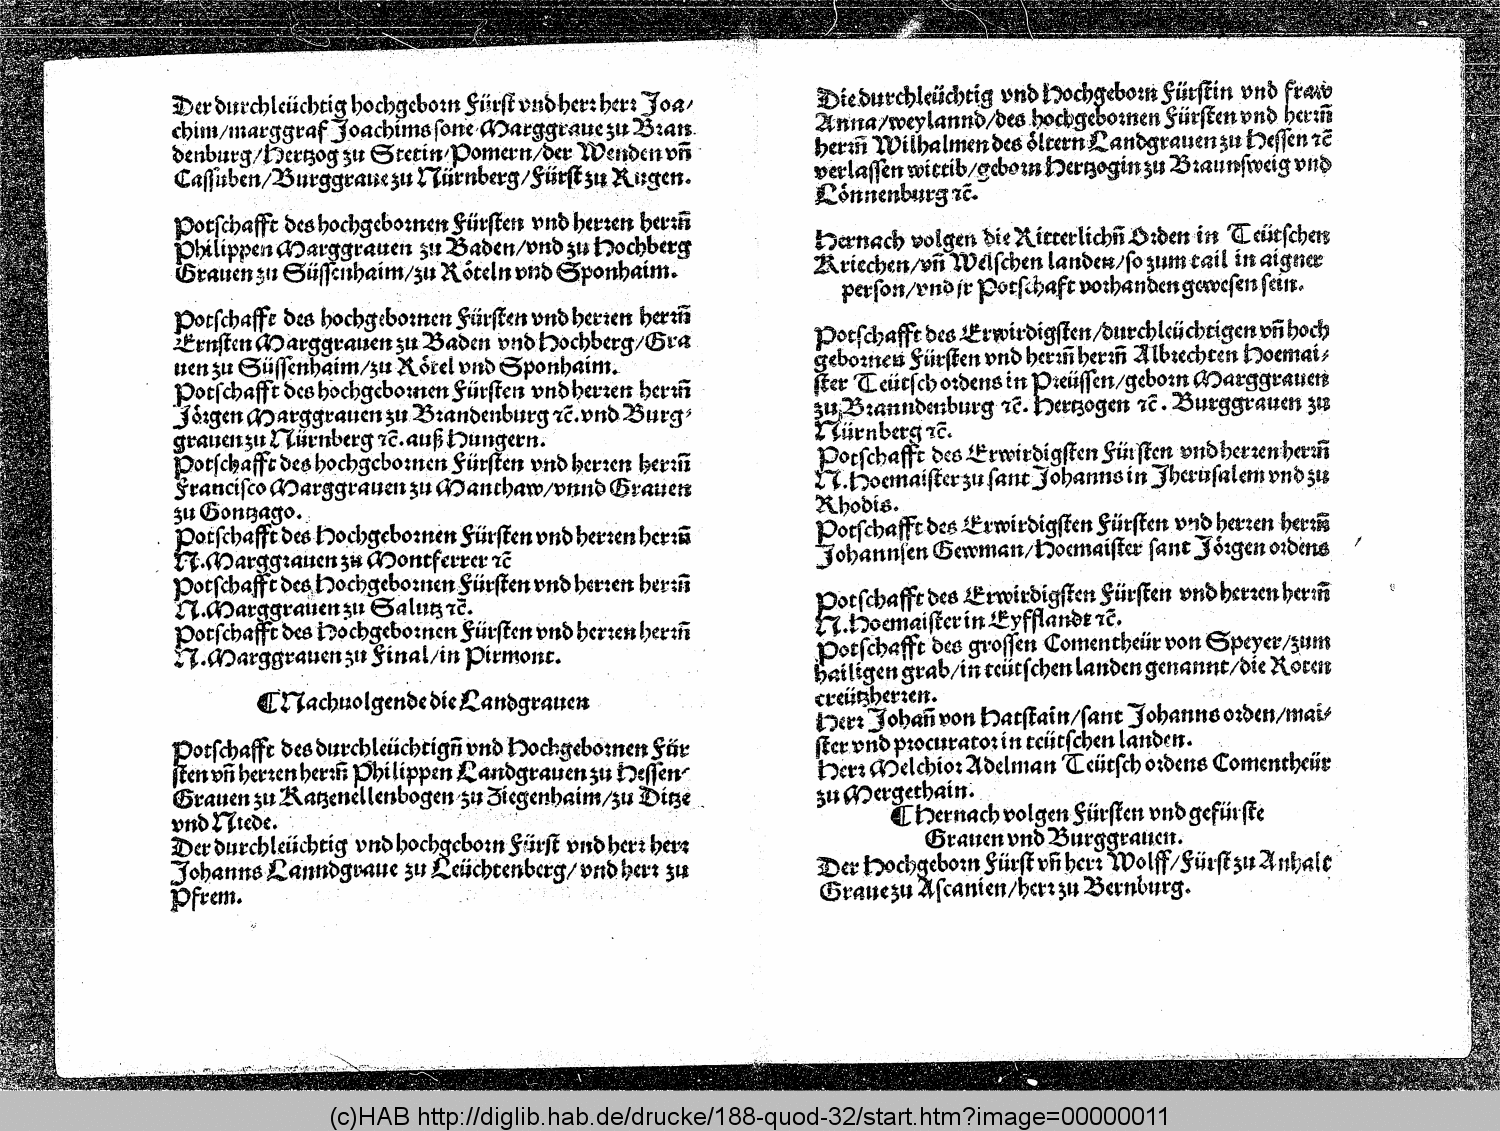 Der durchleüchtig hochgeborn Fürst vnd herr herr Joa/
chim/marggraf Joachims sone Marggraue zu Bran
denburg/Hertzog zu Stetin/Pomern/der Wenden vn̄
Cassuben/Burggraue zu Nürnberg/Fürst zu Rugen.
Potschafft des hochgebornen Fürsten vnd herren herrn̄
Philippen Marggrauen zu Baden/vnd zu Hochberg
Grauen zu Süssenhaim/zu Röteln vnd Sponhaim.
Potschafft des hochgebornen Fürsten vnd herren herrn̄
Ernsten Marggrauen zu Baden vnd Hochberg/Gra
uen zu Süssenhaim/zu Rötel vnd Sponhaim.
Potschafft des hochgebornen Fürsten vnd herren herrn̄
Jörgen Marggrauen zu Brandenburg ꝛc̄. vnd Burg/
grauen zu Nürnberg ꝛc̄. auß Hungern.
Potschafft des hochgebornen Fürsten vnd herren herrn̄
Francisco Marggrauen zu Manthaw/vnnd Grauen
zu Gontzago.
Potschafft des Hochgebornen Fürsten vnd herren herrn̄
N. Marggrauen zu Montferrer ꝛc̄
Potschafft des Hochgebornen Fürsten vnd herren herrn̄
N. Marggrauen zu Salutz ꝛc̄.
Potschafft des Hochgebornen Fürsten vnd herren herrn̄
N. Marggrauen zu Final/in Pirmont.
¶ Nachuolgende die Landgrauen
Potschafft des durchleüchtign̄ vnd Hochgebornen Für
sten vn̄ herren herrn̄ Philippen Landgrauen zu Hessen/
Grauen zu Katzenellenbogen/zu Ziegenhaim/zu Ditze
vnd Niede.
Der durchleüchtig vnd hochgeborn Fürst vnd herr herr
Johanns Lanndgraue zu Leüchtenberg/vnd herr zu
Pfrem.
Die durchleüchtig vnd Hochgeborn Fürstin vnd fraw
Anna/weylannd/des hochgebornen Fürsten vnd herrn̄
herrn̄ Wilhalmen des öltern Landgrauen zu Hessen ꝛc̄
verlassen wittib/geborn Hertzogin zu Braunsweig vnd
Lönnenburg ꝛc̄.
Hernach volgen die Ritterlichn̄ Orden in Teütschen
Kriechen/vn̄ Welschen landen/so zum tail in aigner
person/vnd jr Potschaft vorhanden gewesen sein.
Potschafft des Erwirdigsten/durchleüchtigen vn̄ hoch
gebornen Fürsten vnd herrn̄ herrn̄ Albrechten Hoemai/
ster Teütsch ordens in Preüssen/geborn Marggrauen
zu Branndenburg ꝛc̄. Hertzogen ꝛc̄. Burggrauen zu
Nürnberg ꝛc̄.
Potschafft des Erwirdigsten Fürsten vnd herren herrn̄
N. Hoemaister zu sant Johanns in Jherusalem vnd zu
Rhodis.
Potschafft des Erwirdigsten Fürsten vnd herren herrn̄
Johannsen Gewman/Hoemaister sant Jörgen ordens
Potschafft des Erwirdigsten Fürsten vnd herren herrn̄
N. Hoemaister in Eyfflandt ꝛc̄.
Potschafft des grossen Comentheür von Speyer/zum
hailigen grab/in teütschen landen genannt/die Roten
creützherren.
Herr Johan̄ von Hatstain/sant Johanns orden/mai/
ster vnd procurator in teütschen landen.
Herr Melchior Adelman Teütsch ordens Comentheür
zu Mergethain.
¶ Hernach volgen Fürsten vnd gefürste
Grauen vnd Burggrauen.
Der Hochgeborn Fürst vn̄ herr Wolff/Fürst zu Anhalt
Graue zu Ascanien/herr zu Bernburg.
(c)HAB http://diglib.hab.de/drucke/188-quod-32/start.htm?image=00000011